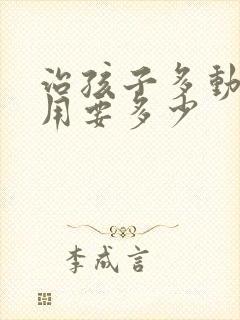 治孩子多動
用要多少
李成言